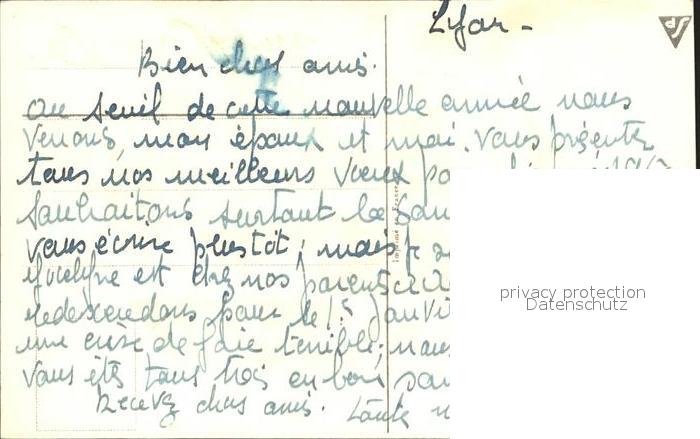 Lyon -
Bien chers amis.
au seuil de cette nouvelle année nous
venons, mon époux et moi. vous présenter
tous nos meilleurs vœux
souhaitons surtout la
vous écrire plus tôt ; mais je
Jocelyne est chez nos parents
redescendons pour le 15 Janvi
une crise de foie terrible; nous
vous êtes tous trois en bon
Recevez chers amis. toute
Imprimé en France
privacy protection
Datenschutz